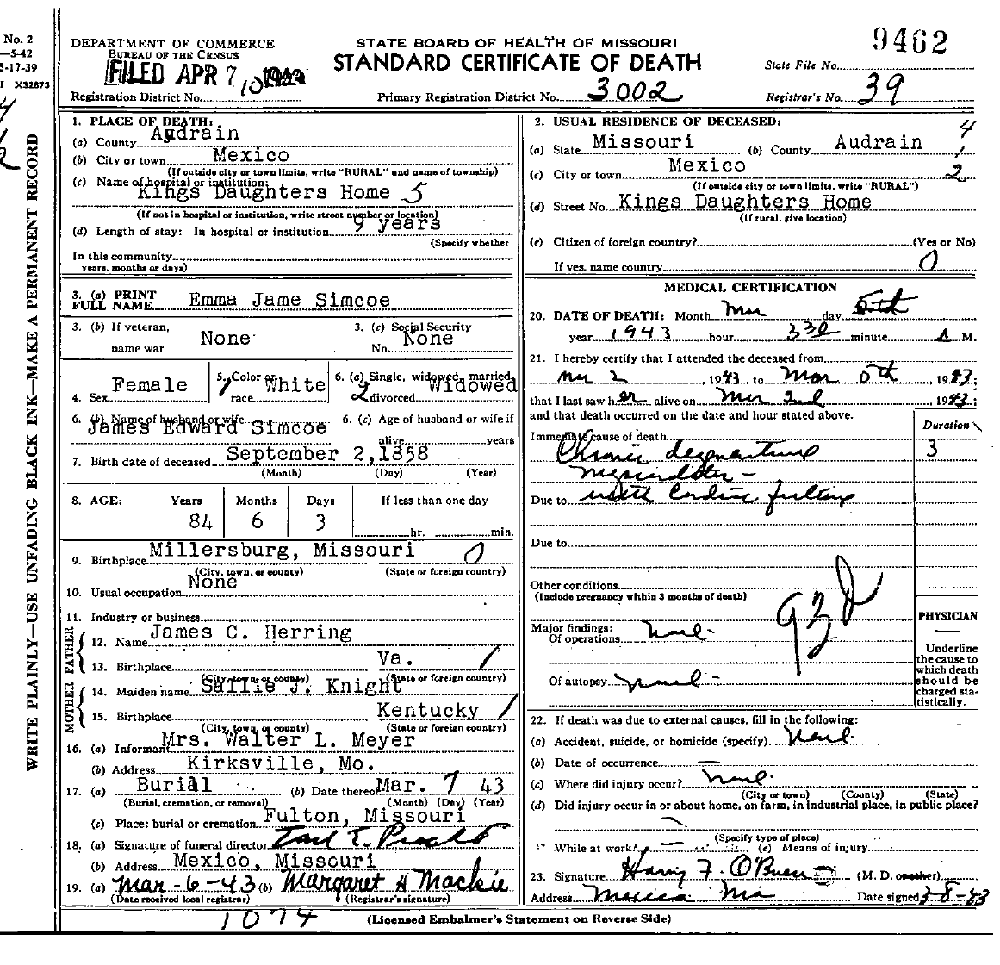 No. 2
—5-42
-17-39
X32873
WRITE PLAINLY—USE UNFADING BLACK INK—MAKE A PERMANENT RECORD
9462
DEPARTMENT OF COMMERCE
BUREAU OF THE CENSUS
FILED APR 7
STATE BOARD OF HEALTH OF MISSOURI
STANDARD CERTIFICATE OF DEATH
State File No.
Registration District No.
Primary Registration District No. 3002
Registrar's No. 39
1. PLACE OF DEATH:
(a) County Audrain
(b) City or town Mexico
(If outside city or town limits, write "RURAL" and name of township)
(c) Name of hospital or institution:
Kings Daughters Home 5
(If not in hospital or institution, write street number or location)
(d) Length of stay: In hospital or institution 9 years
(Specify whether
In this community
years, months or days)
3. (a) PRINT FULL NAME Emma Jame Simcoe
3. (b) If veteran, name war None
3. (c) Social Security No. None
4. Sex Female
5. Color or race White
6. (a) Single, widowed, married, divorced Widowed
6. (b) Name of husband or wife
James Edward Simcoe
6. (c) Age of husband or wife if alive years
7. Birth date of deceased September 2, 1858
(Month) (Day) (Year)
8. AGE: Years Months Days If less than one day
84 6 3 hr. min.
9. Birthplace Millersburg, Missouri 0
(City, town, or county) (State or foreign country)
10. Usual occupation None
11. Industry or business
FATHER
12. Name James C. Herring
13. Birthplace Va.
(City, town, or county) (State or foreign country)
MOTHER
14. Maiden name Sallie J. Knight
15. Birthplace Kentucky
(City, town, or county) (State or foreign country)
16. (a) Informant Mrs. Walter L. Meyer
(b) Address Kirksville, Mo.
17. (a) Burial (b) Date thereof Mar. 7 43
(Burial, cremation, or removal) (Month) (Day) (Year)
(c) Place: burial or cremation Fulton, Missouri
18. (a) Signature of funeral director
(b) Address Mexico, Missouri
19. (a) Mar-6-43 (b) Margaret H Mackie
(Date received local registrar) (Registrar's signature)
1074
2. USUAL RESIDENCE OF DECEASED: 4
(a) State Missouri (b) County Audrain
(c) City or town Mexico 2
(If outside city or town limits, write "RURAL")
(d) Street No. Kings Daughters Home
(If rural, give location)
(e) Citizen of foreign country? (Yes or No)
If yes, name country 0
MEDICAL CERTIFICATION
20. DATE OF DEATH: Month Mar day 5th
year 1943 hour 330 minute A M.
21. I hereby certify that I attended the deceased from
Mar 2, 1943 to Mar 5th, 1943;
that I last saw her alive on Mar, 1943;
and that death occurred on the date and hour stated above.
Duration
Immediate cause of death
Chronic 3
Due to
Due to
Other conditions
(Include pregnancy within 3 months of death)
Major findings:
Of operations
Of autopsy
93D
PHYSICIAN
Underline the cause to which death should be charged statistically.
22. If death was due to external causes, fill in the following:
(a) Accident, suicide, or homicide (specify)
(b) Date of occurrence —
(c) Where did injury occur?
(City or town) (County) (State)
(d) Did injury occur in or about home, on farm, in industrial place, in public place?
(Specify type of place)
While at work? (e) Means of injury
23. Signature Harry F. O'Brien (M. D. or other)
Address Mexico Mo Date signed 3-8-43
(Licensed Embalmer's Statement on Reverse Side)